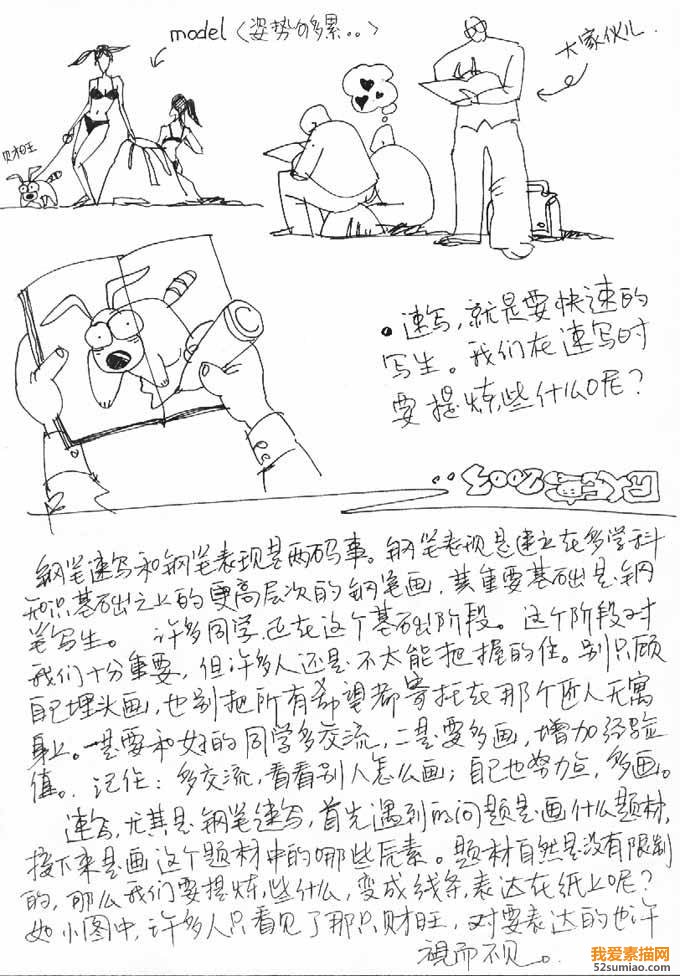 model〈姿势够累。。〉
大家伙儿
财旺
• 速写，就是要快速的
写生。我们在速写时
要提炼些什么呢？
钢笔速写和钢笔表现是两码事。钢笔表现是建立在多学科
知识基础之上的更高层次的钢笔画，其重要基础是钢
笔写生。 许多同学还在这个基础阶段。这个阶段对
我们十分重要，但许多人还是不太能把握的住。别只顾
自己埋头画，也别把所有希望都寄托在那个匠人无寓
身上。一是要和好的同学多交流，二是要多画，增加经验
值。 记住：多交流，看看别人怎么画；自己也努力点，多画。
速写，尤其是钢笔速写，首先遇到的问题是画什么题材，
接下来是画这个题材中的哪些元素。题材自然是没有限制
的，那么我们要提炼些什么，变成线条，表达在纸上呢？
如小图中，许多人只看见了那只财旺，对要表达的也许
视而不见。
我爱素描网
52sumiao.com